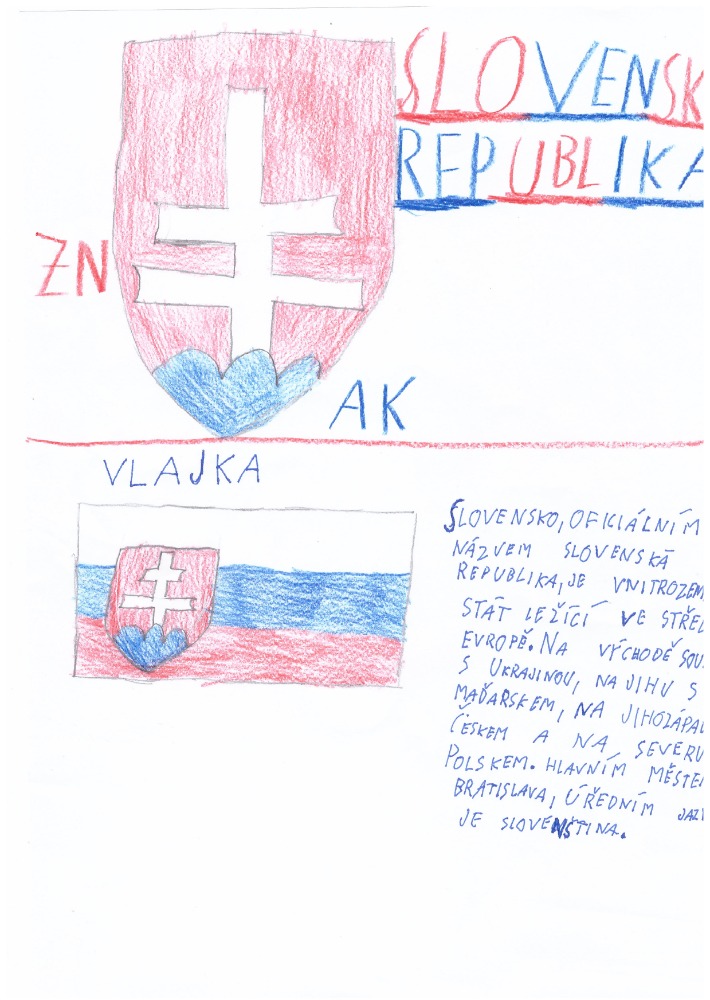 SLOVENSK
REPUBLIKA
ZN
AK
VLAJKA
SLOVENSKO, OFICIÁLNÍM
NÁZVEM SLOVENSKÁ
REPUBLIKA, JE VNITROZEM
STÁT LEŽÍCÍ VE STŘED
EVROPĚ. NA VÝCHODĚ SOU
S UKRAJINOU, NA JIHU S
MAĎARSKEM, NA JIHOZÁPAD
ČESKEM A NA SEVERU
POLSKEM. HLAVNÍM MĚSTEM
BRATISLAVA, ÚŘEDNÍM JAZY
JE SLOVENŠTINA.